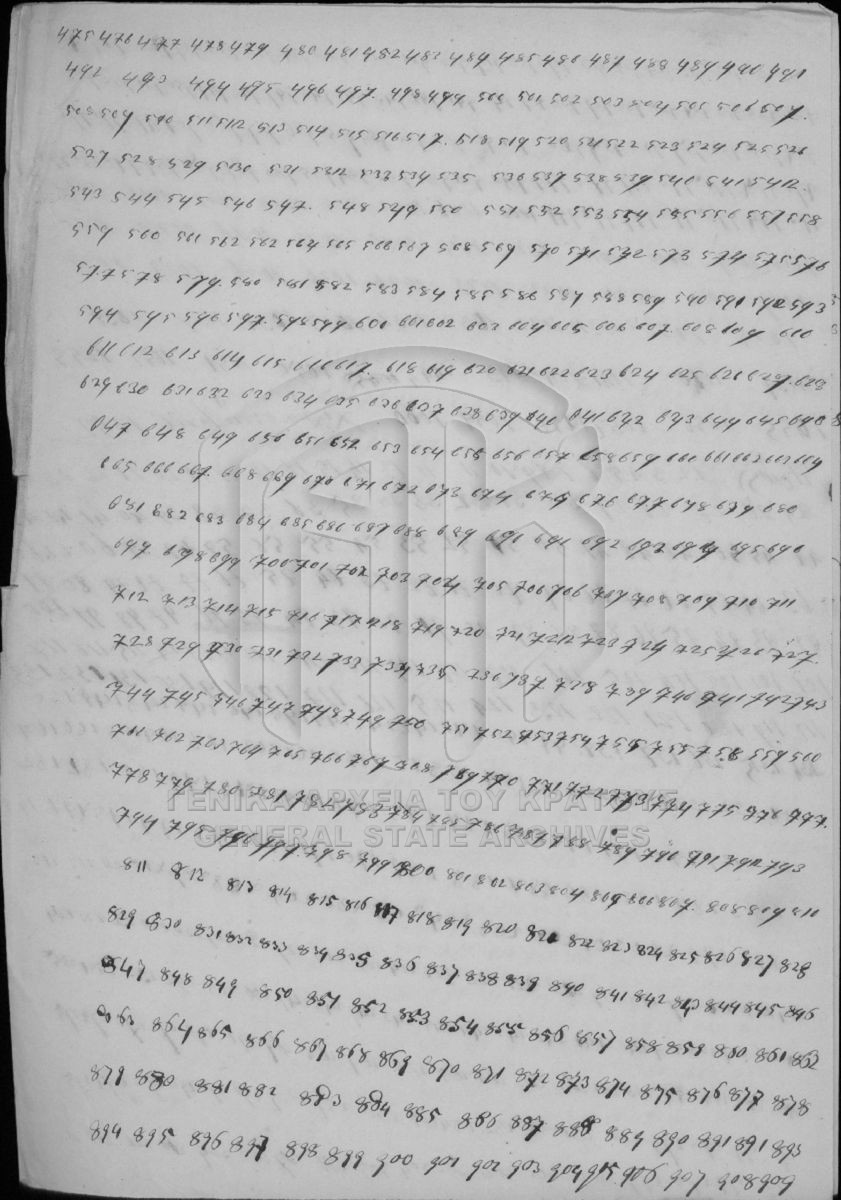 475 476 477 478 479 480 481 482 483 484 485 486 487 488 489 490 491
492 493 494 495 496 497. 498 499 500 501 502 503 504 505 506 507.
508 509 510 511 512 513 514 515 516 517. 518 519 520 521 522 523 524 525 526
527 528 529 530 531 5312 533 534 535 536 537 538 539 540 541 5412.
543 544 545 546 547. 548 549 550 551 552 553 554 555 556 557 558
559 560 561 562 562 564 565 566 567 568 569 570 571 572 573 574 575 576
577 578 579. 580 581 582 583 584 585 586 587 588 589 590 591 592 593
594 595 596 597. 598 599 600 601 602 603 604 605 606 607. 608 609 610
611 612 613 614 615 616 617. 618 619 620 621 622 623 624 625 626 627. 628
629 630 631 632 633 634 635 636 637 638 639 640 641 642 643 644 645 646
647 648 649 650 651 652 653 654 655 656 657 658 659 660 661 662 663 664
665 666 667. 668 669 670 671 672 673 674 675 676 677 678 679 680
681 682 683 684 685 686 687 688 689 690 691 692 693 694 695 696
697 698 699 700 701 702 703 704 705 706 706 707 708 709 710 711
712 713 714 715 716 717 718 719 720 721 7212 723 724 725 726 727.
728 729 730 731 732 733 734 735 736 737 738 739 740 741 742 743
744 745 546 747 748 749 750 751 752 753 754 755 755 758 559 500
761 762 763 764 765 766 767 768 769 770 771 772 773 774 775 776 777.
778 779 780 781 782 783 784 785 786 787 788 789 790 791 792 793
ΓΕΝΙΚΑ ΑΡΧΕΙΑ ΤΟΥ ΚΡΑΤΟΥΣ
GENERAL STATE ARCHIVES
794 795 796 797. 798 799 800 801 802 803 804 805 806 807. 808 809 810
811 812 813 814 815 816 817 818 819 820 821 822 823 824 825 826 827 828
829 830 831 832 833 834 835 836 837 838 839 840 841 842 843 844 845 846
847 848 849 850 851 852 853 854 855 856 857 858 859 860 861 862
863 864 865 866 867 868 869 870 871 872 873 874 875 876 877 878
879 880 881 882 883 884 885 886 887 888 889 890 891 891 893
894 895 896 897 898 899 900 901 902 903 904 905 906 907 908 909